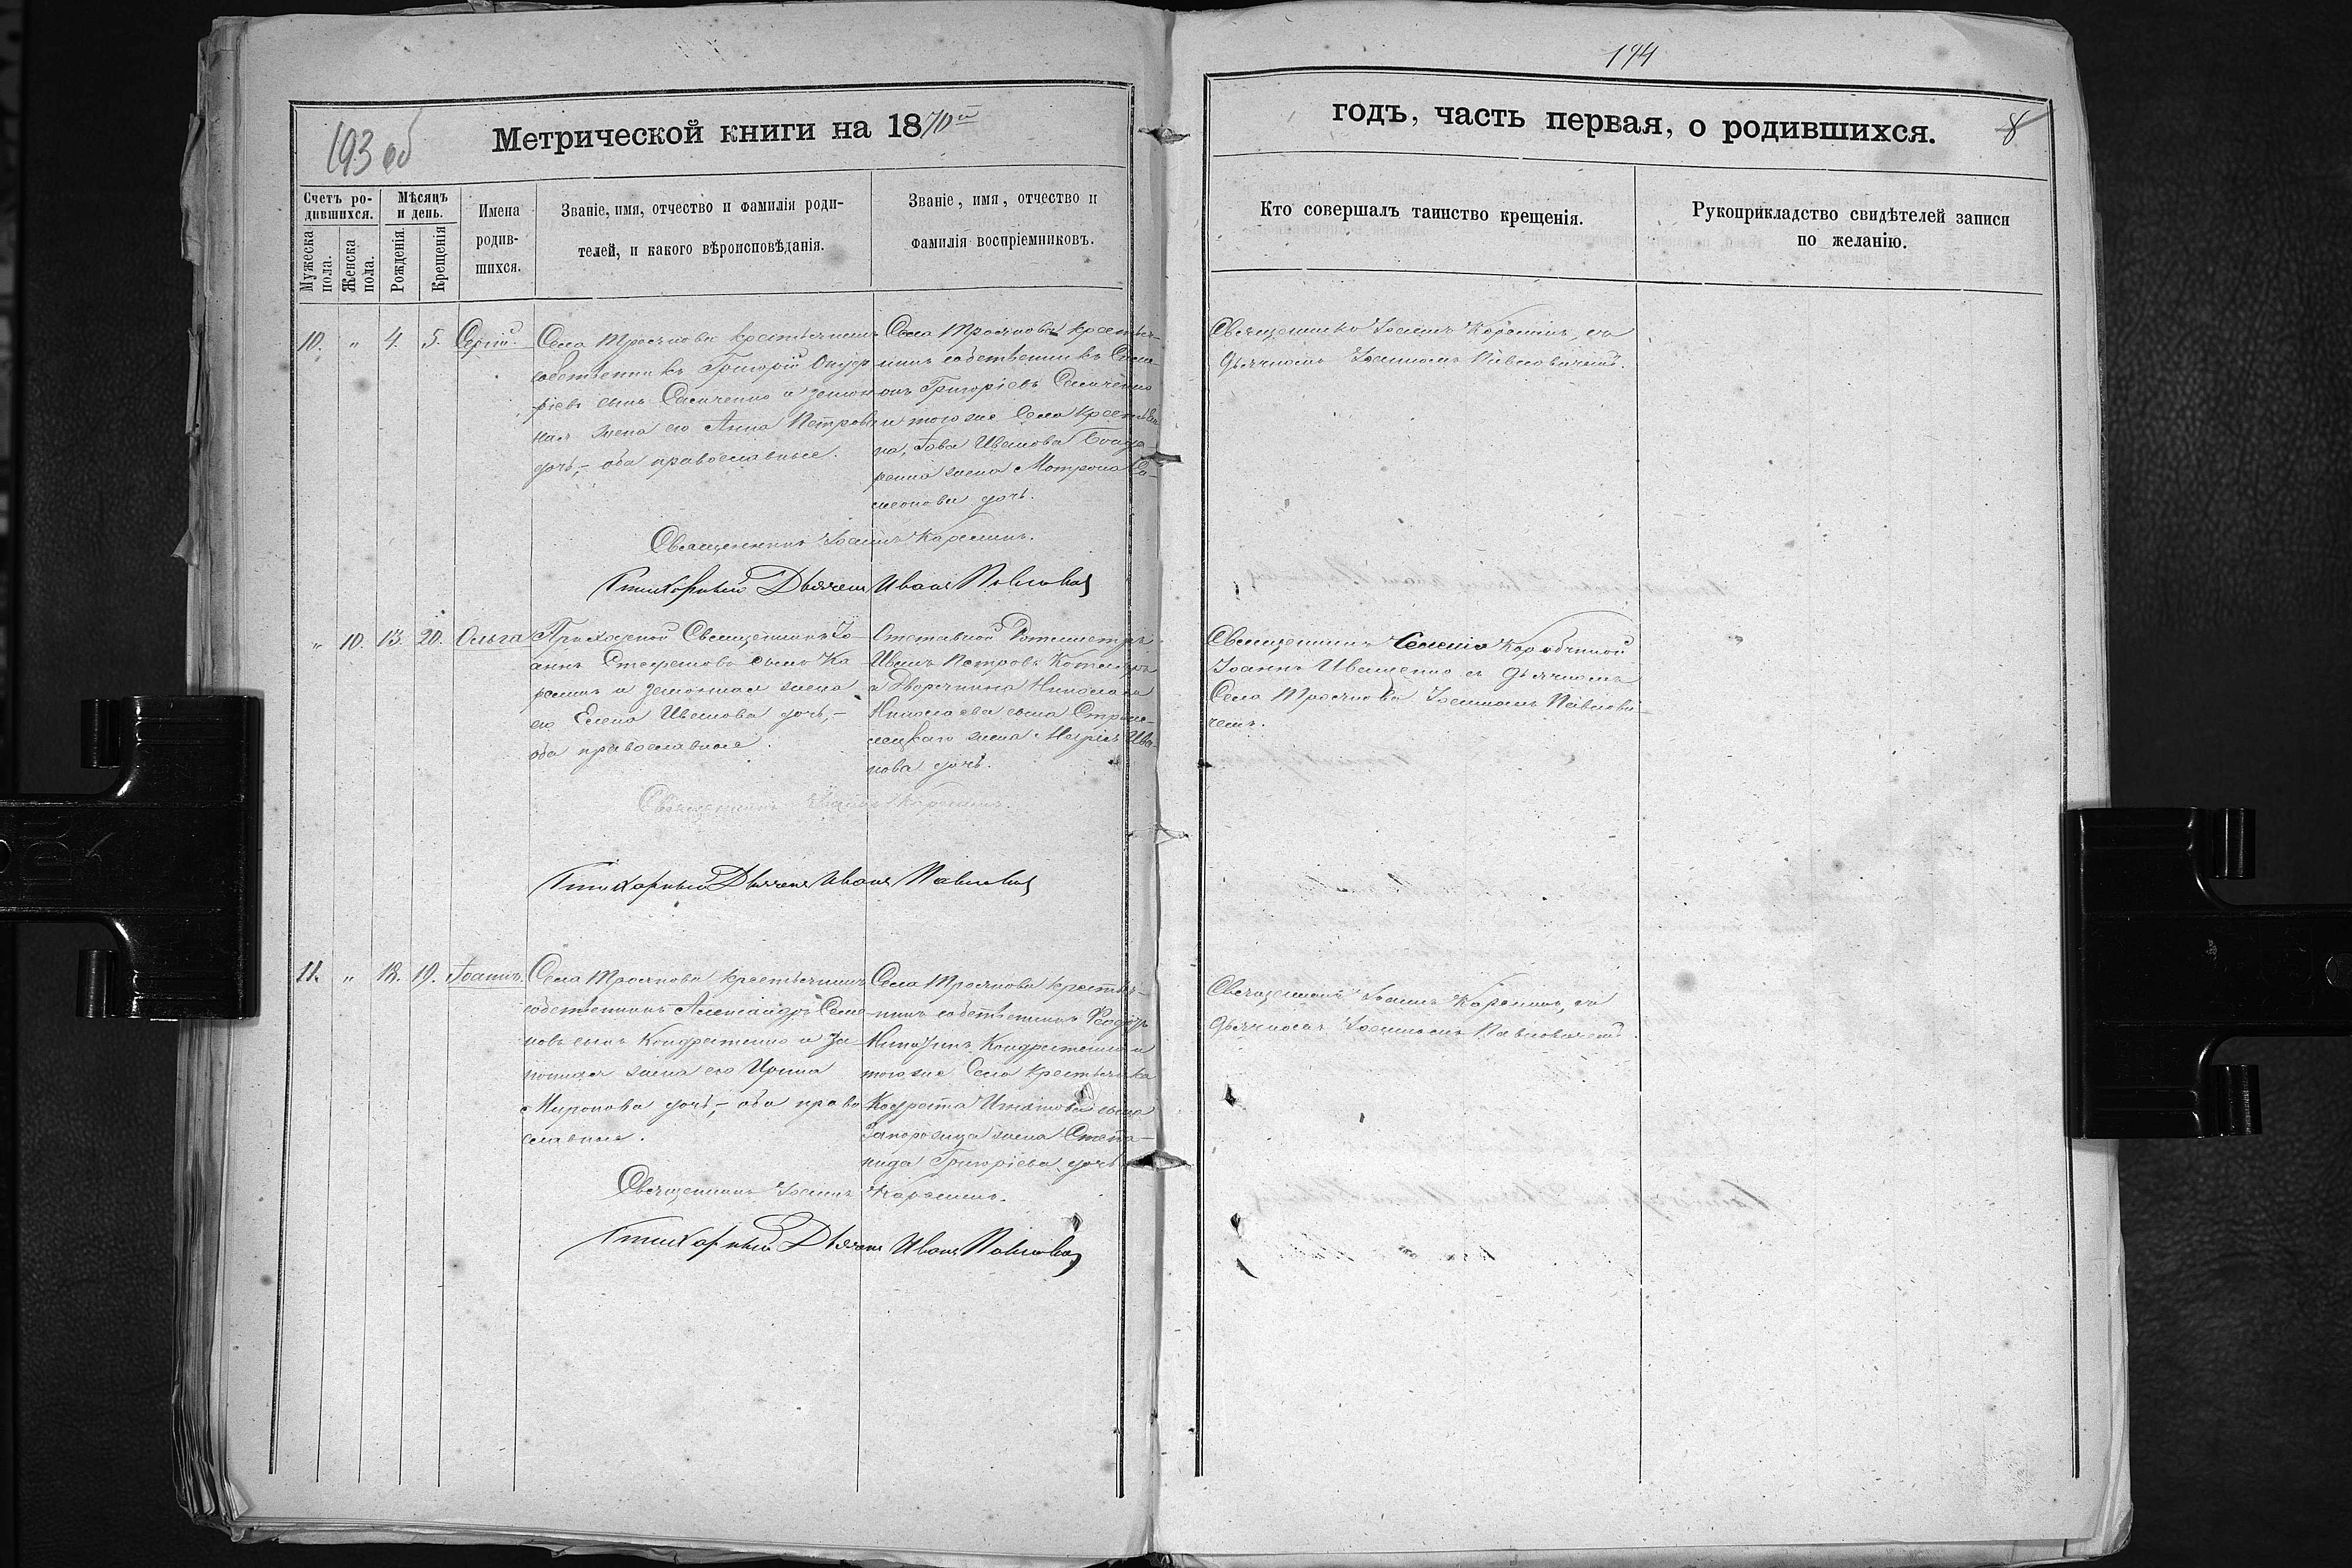 193 об
Метрической книги на 1870й
Счетъ ро-
дившихся.
Мужеска
пола.
Женска
пола.
Мѣсяцъ
и день.
Рожденія.
Крещенія
Имена
родив-
шихся.
Званіе, имя, отчество и фамилія роди-
телей, и какого вѣроисповѣданія.
Званіе, имя, отчество и
фамилія воспріемниковъ.
10. " 4. 5. Сергій.
Села Троянова крестьянинъ
собственникъ Григорій
сынъ и закон
ная жена его Анна Петрова
дочь,- оба православные.
Села Троянова крестья-
нинъ собственникъ
Григоріевъ
и того же Села крестьян
ка, Іова Иванова
жена Мотрона Си-
меонова дочь.
Священникъ Іоаннъ Карелинъ.
Стихарный Дьячекъ Иванъ Павловичъ
" 10. 13. 20. Ольга
Приходской Священникъ Іо-
аннъ Стефановъ сынъ Ка
релинъ и законная жена
его Елена Иванова дочь,-
оба православные.
Отставной Ротмистръ
Иванъ Петровъ
и Дворянина Николая
Николаева сына
жена Марія Ива-
нова дочь.
Священникъ Іоаннъ Карелинъ.
Стихарный Дьячекъ Иванъ Павловичъ
11. " 18. 19. Іоаннъ.
Села Троянова крестьянинъ
собственникъ Александръ Семе
новъ сынъ Кондратенко и За
конная жена его Ирина
Миронова дочь,- оба право
славные.
Села Троянова крестья-
нинъ собственникъ Ѳеодоръ
Кондратенко и
того же Села крестьянка
Кодрата Игнатова сына
Запорожца жена Степа-
нида Григоріева дочь
Священникъ Іоаннъ Карелинъ.
Стихарный Дьячекъ Иванъ Павловичъ
194
годъ, часть первая, о родившихся.
8
Кто совершалъ таинство крещенія.
Рукоприкладство свидѣтелей записи
по желанію.
Священникъ Іоаннъ Карелинъ, съ
дьячкомъ Іоанномъ Павловичемъ.
Священникъ Селенія
Іоаннъ Иващенко съ дьячкомъ
Села Троянова Іоанномъ Павлови-
чемъ.
Священникъ Іоаннъ Карелинъ, съ
дьячкомъ Іоанномъ Павловичемъ.